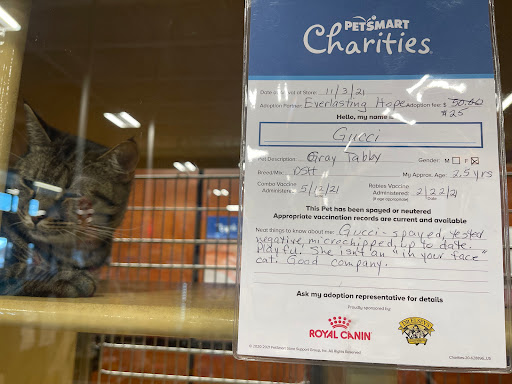 PETSMART
Charities
Date of Arrival at Store: 11/3/21
Adoption Partner: Everlasting Hope Adoption fee: $ 50.00
$25
Hello, my name
Gucci
Pet Description: Gray Tabby Gender: M F
Breed/Mix: DSH My Approx. Age: 2.5 yrs
Combo Vaccine Administered: 5/12/21 Rabies Vaccine Administered: 2/22/21
(if age appropriate) Date
This Pet has been spayed or neutered
Appropriate vaccination records are current and available
Neat things to know about me: Gucci - spayed, tested
negative, microchipped, up to date.
Playful. She isn't an "in your face"
cat. Good company.
Ask my adoption representative for details
Proudly sponsored by:
ROYAL CANIN